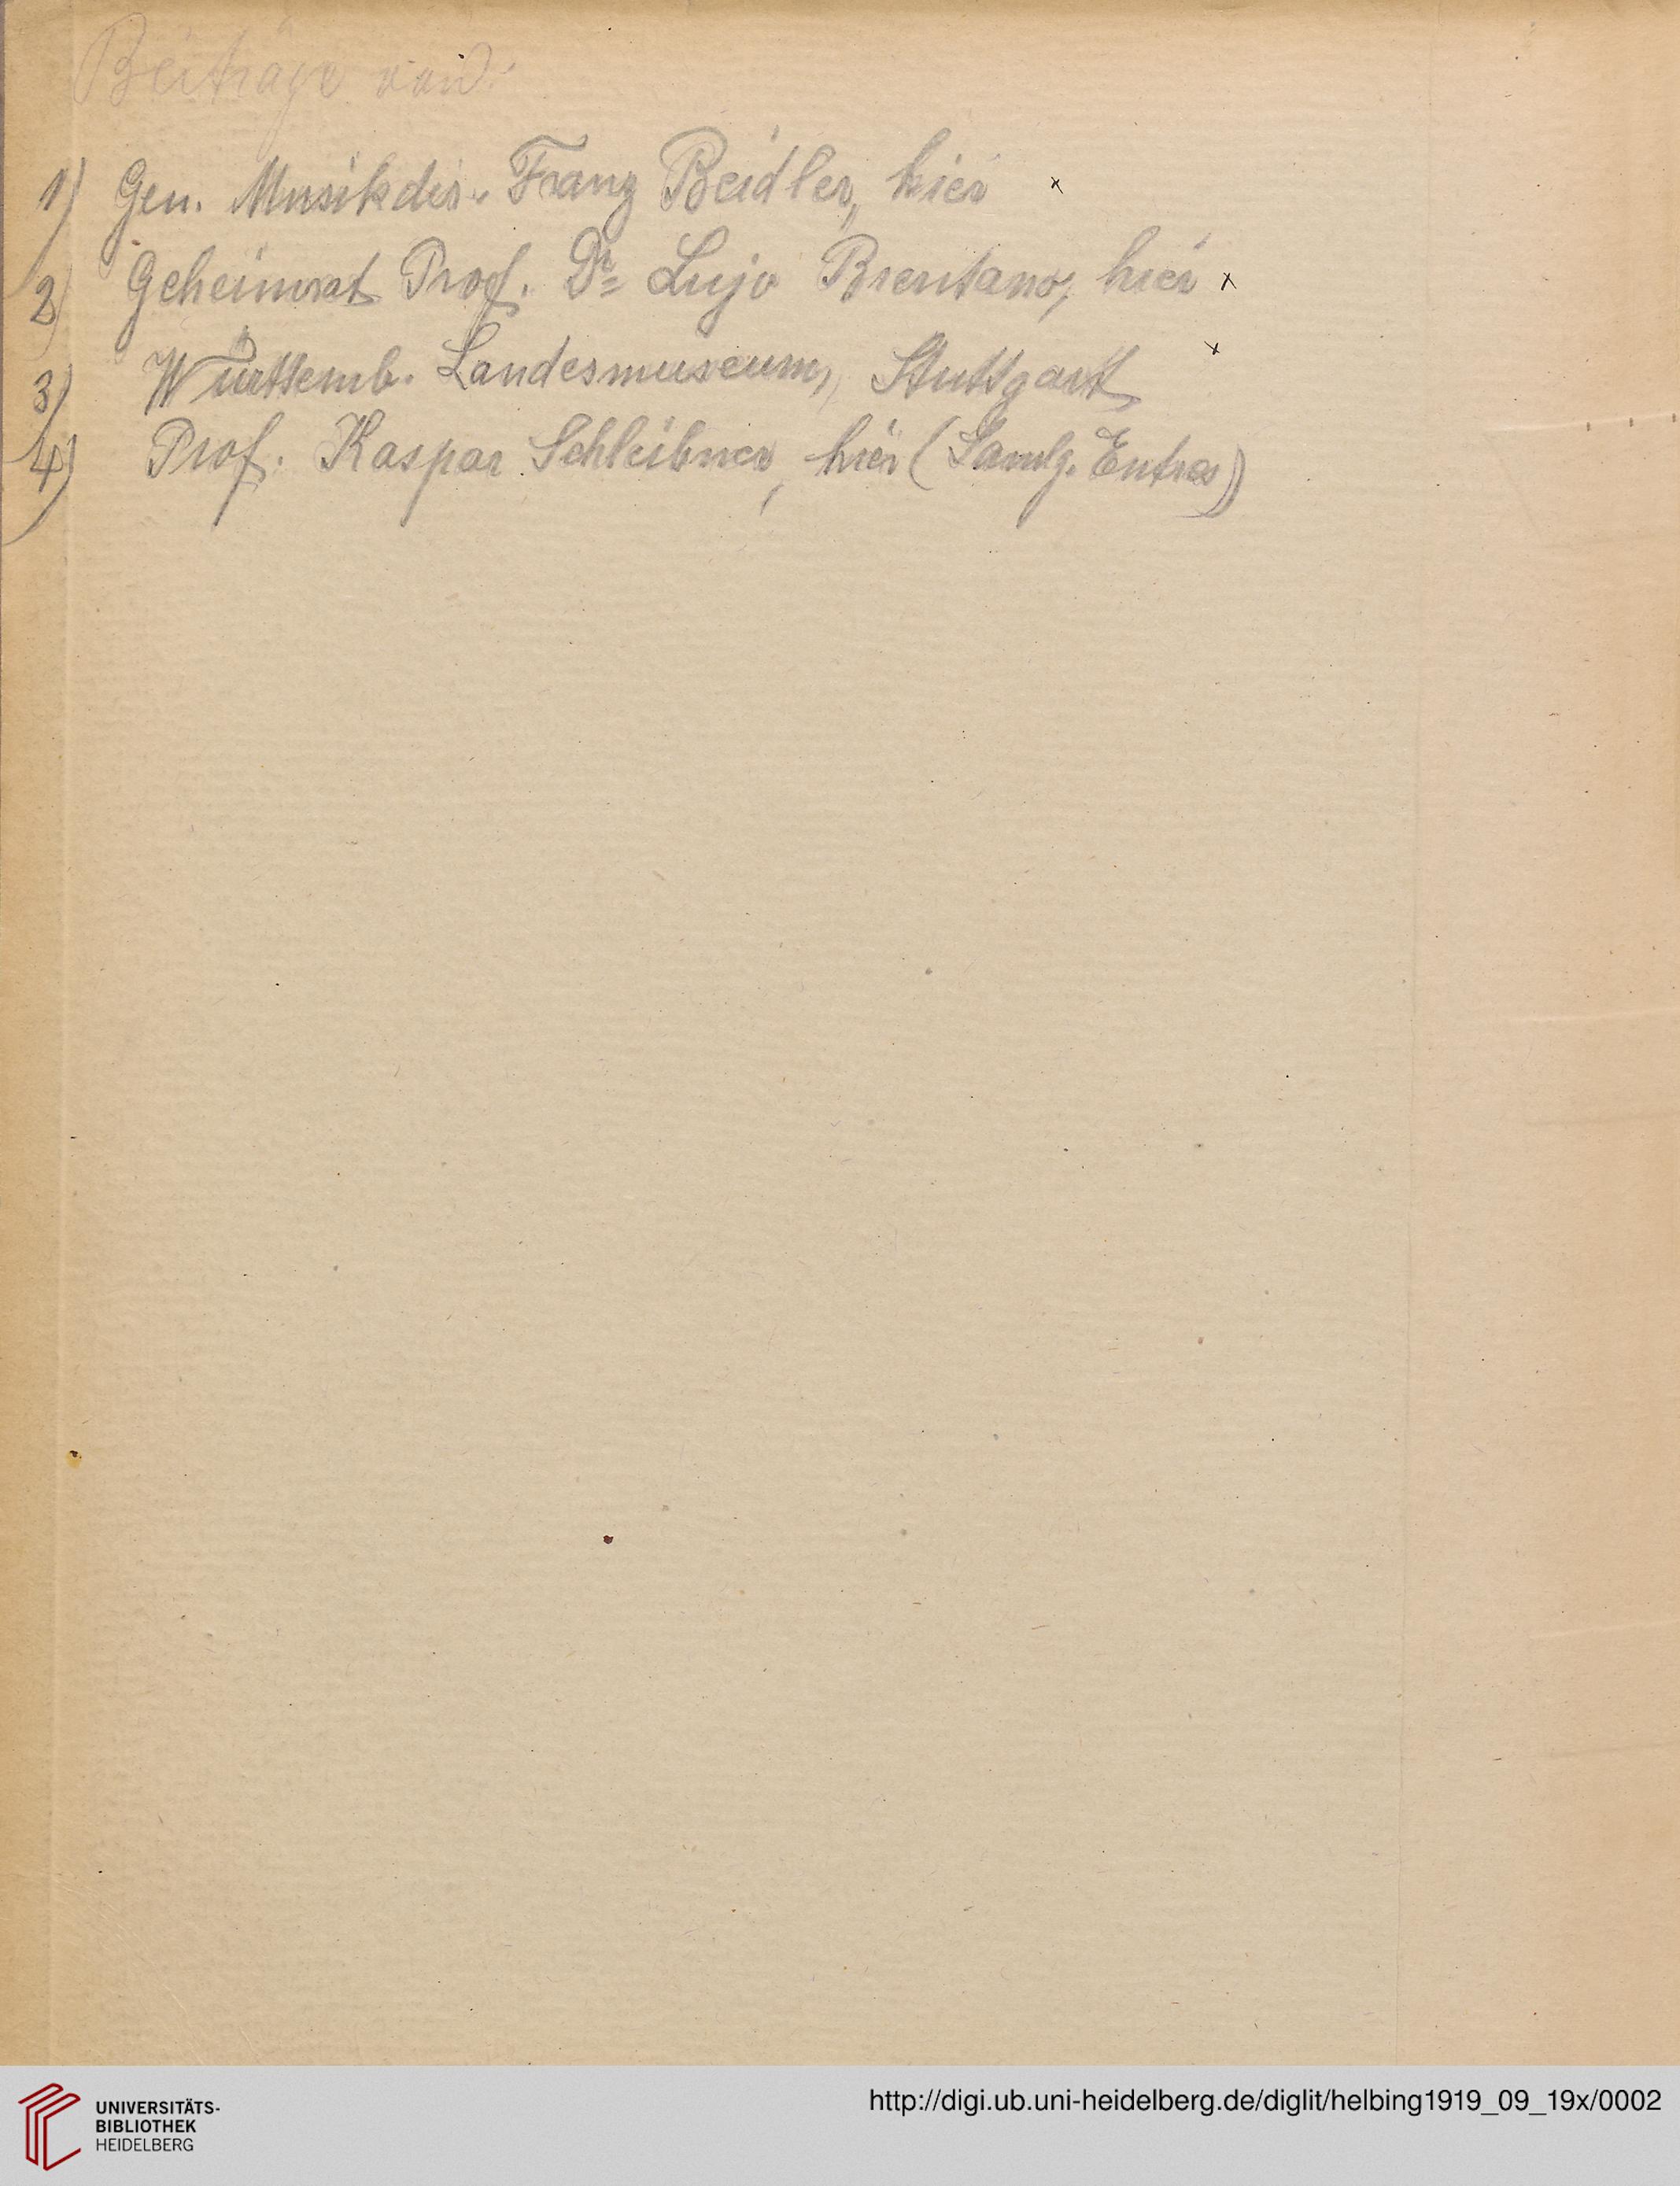 Beiträge von:
1) Gen. Musikdir. Franz Beidler, hier x
2) Geheimrat Prof. Dr. Lujo Brentano, hier x
3) Württemb. Landesmuseum, Stuttgart x
4) Prof. Kaspar Schleibner, hier (Samlg. Entres)
UNIVERSITÄTS-
BIBLIOTHEK
HEIDELBERG
http://digi.ub.uni-heidelberg.de/diglit/helbing1919_09_19x/0002